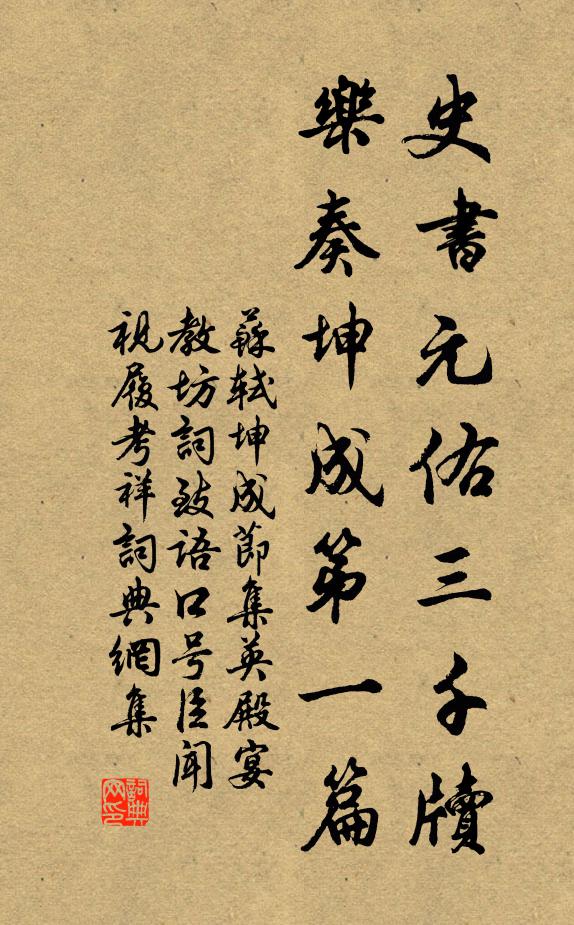 史書元佑三千牘
樂奏坤成第一篇
蘇軾坤成節集英殿宴
教坊詞致語口号臣聞
視履考祥詞典網集
詞典
网印